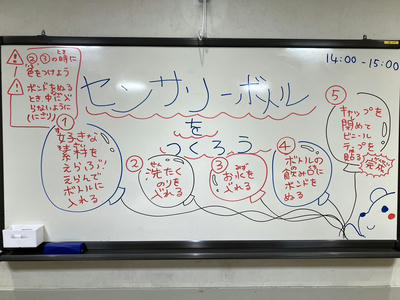 14:00-15:00
⚠ ②③の時に
色をつけよう
⚠ ボンドをぬる
とき、中に入
らないように
(にさり)
センサリーボトル
を
つくろう
①
好きな
素材を
えらぶ♪
えらんで
ボトルに
入れる
②
洗たく
せん
のりを
入れる
③
みず
お水を
入れる
④
ボトルの
飲み口に
ボンドを
ぬる
⑤
キャップを
閉めて
ビニール
テープを
貼る